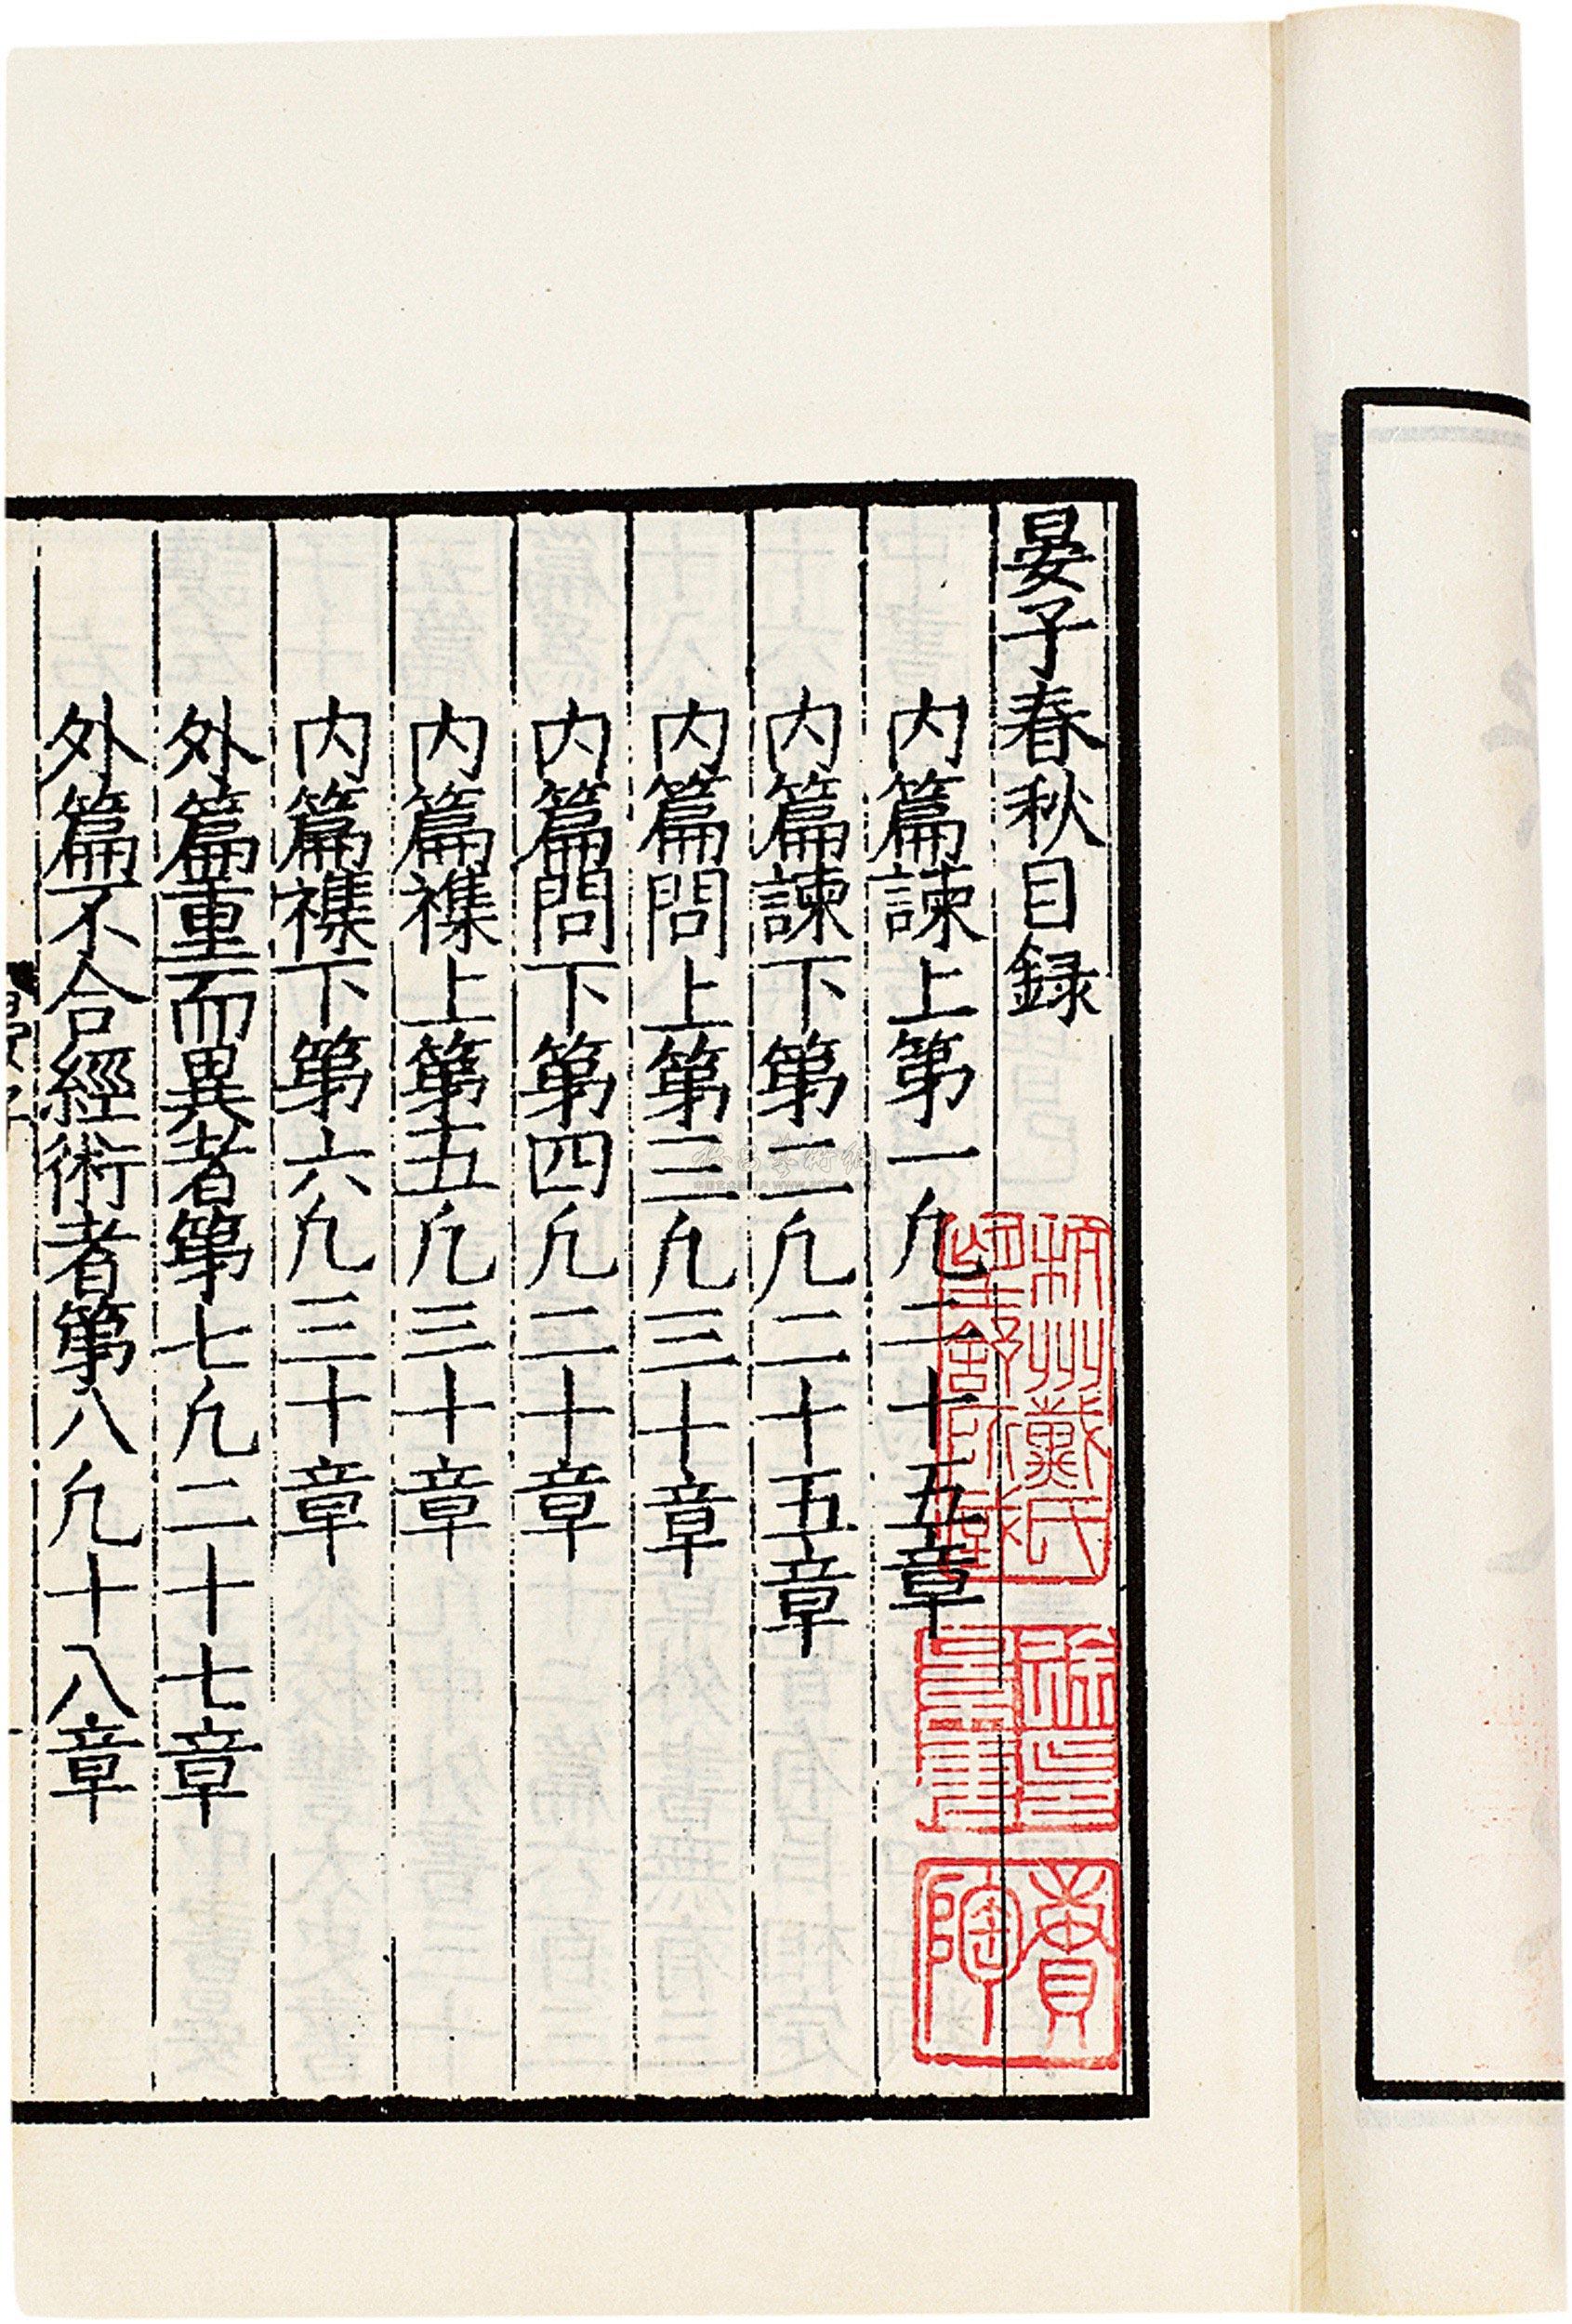 晏子春秋目録
内篇諫上第一凢二十五章
内篇諫下第二凢二十五章
内篇問上第三凢三十章
内篇問下第四凢二十章
内篇襍上第五凢三十章
内篇襍下第六凢三十章
外篇重而異者第七凢二十七章
外篇不合經術者第八凢十八章